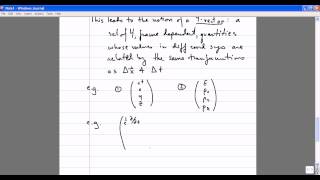 Note1 - Windows Journal
This leads to the notion of a 4-vector: a
set of 4, frame dependent, quantities
whose values in diff coord sys are
related by the same transformations
as Δx & Δt
e.g. ① (ct x y z) ② (E px py pz)
e.g. (1/c ∂/∂t